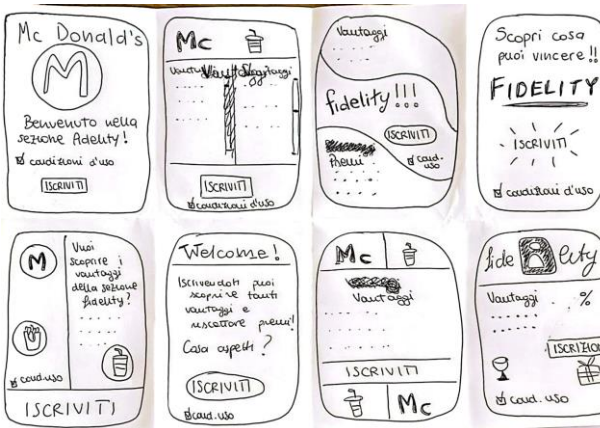 Mc Donald's
M
Benvenuto nella
sezione fidelity!
condizioni d'uso
ISCRIVITI
Mc
Vantaggi
ISCRIVITI
condizioni d'uso
Vantaggi
fidelity!!!
ISCRIVITI
Premi
cond.
uso
Scopri cosa
puoi vincere!!
FIDELITY
ISCRIVITI
condizioni d'uso
M
Vuoi
scoprire i
vantaggi
della sezione
fidelity?
cond.uso
ISCRIVITI
Welcome!
Iscrivendoti puoi
scoprire tanti
vantaggi e
riscattare premi!
Cosa aspetti?
ISCRIVITI
cond. uso
Mc
Vantaggi
ISCRIVITI
Mc
fide lity
Vantaggi %
ISCRIZION
cond. uso